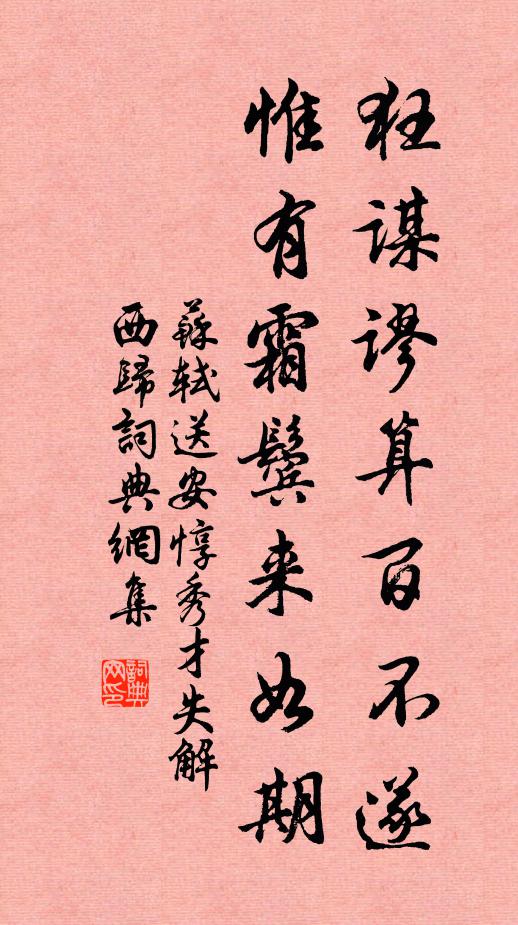 狂謀謬算百不遂
惟有霜鬢来如期
蘇軾送安惇秀才失解
西歸詞典網集
詞典网印